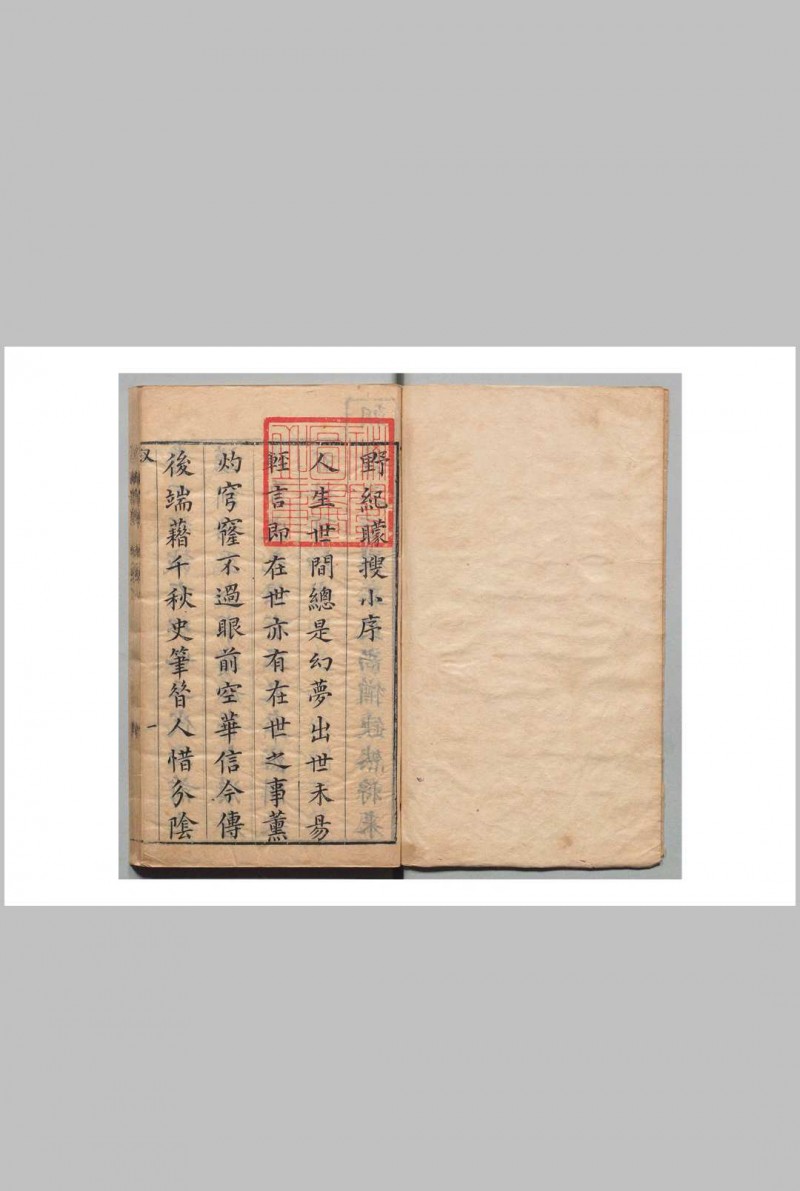 野紀矇搜小序
人生世間總是幻夢出世未易
輕言即在世亦有在世之事薰
灼穹窿不過眼前空華信今傳
後端藉千秋史筆昝人惜分陰